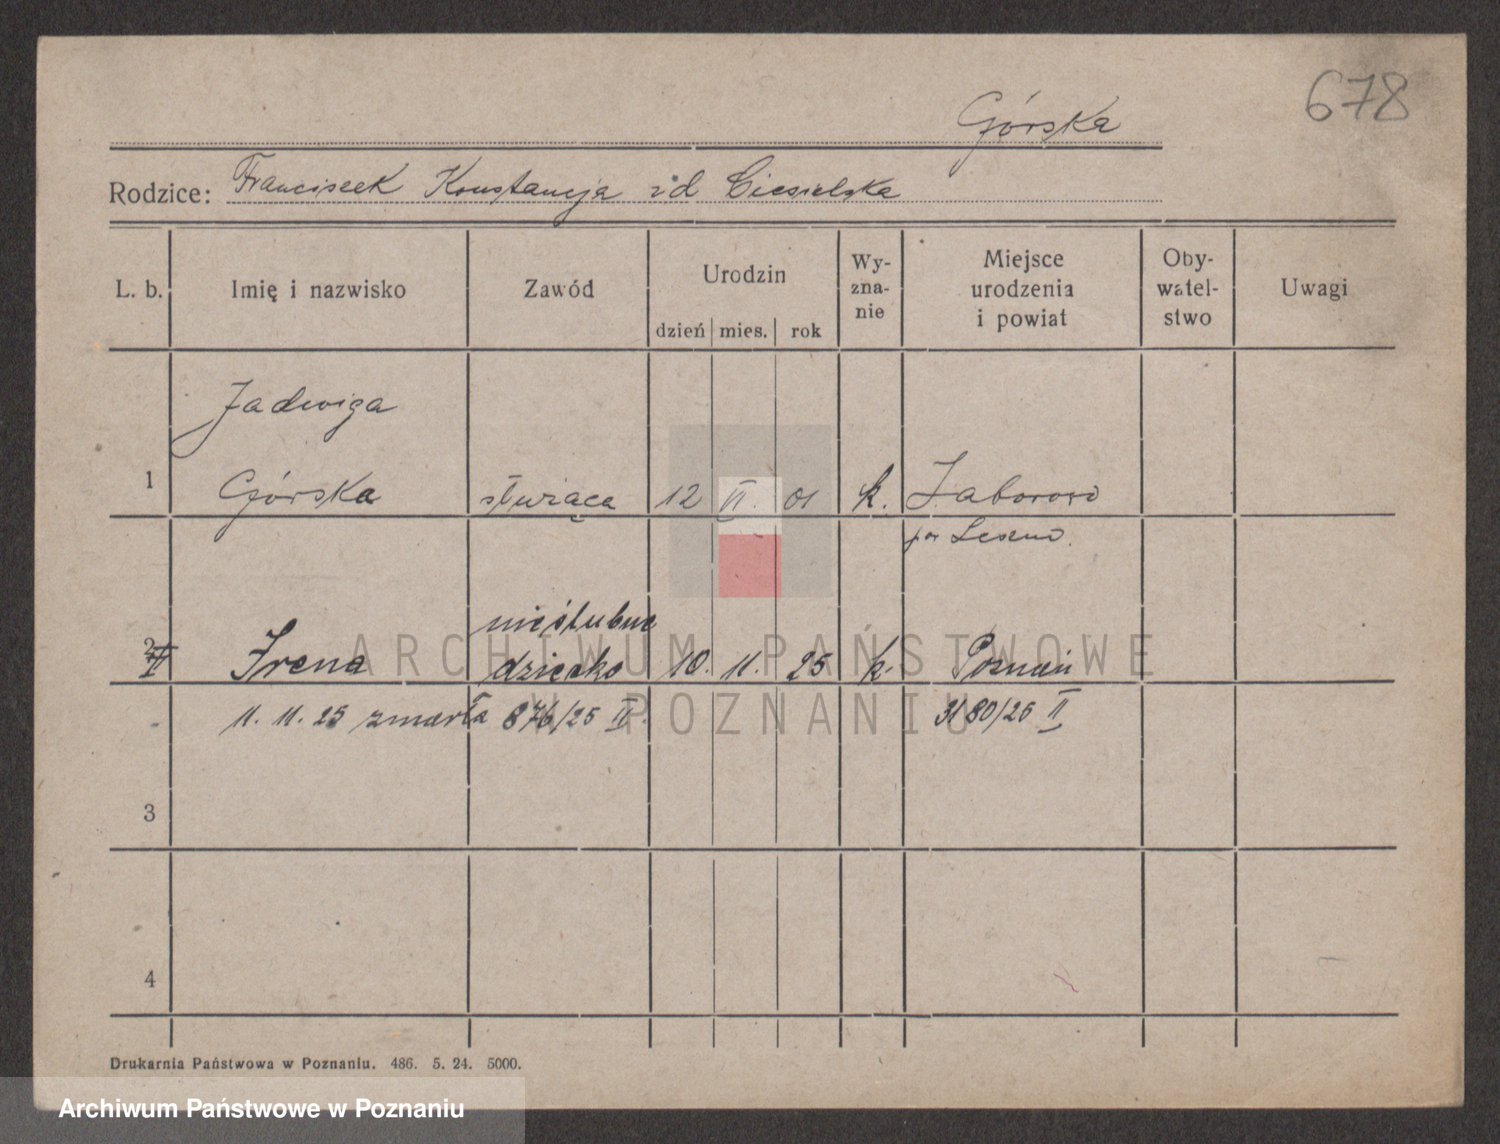 678
Górska
Rodzice: Franciszek Konstancja zd Ciesielska
L. b. Imię i nazwisko Zawód Urodzin dzień mies. rok Wy-zna-nie Miejsce urodzenia i powiat Oby-watel-stwo Uwagi
Jadwiga
1 Górska służąca 12 VI. 01 k. Zaborowo
pow Leszno.
nieślubne
2 Irena dziecko 10. 11. 25 k. Poznań
11. 11. 25 zmarła 876/25 II. 3180/26 II
3
4
Drukarnia Państwowa w Poznaniu. 486. 5. 24. 5000.
ARCHIWUM PAŃSTWOWE
W POZNANIU
Archiwum Państwowe w Poznaniu